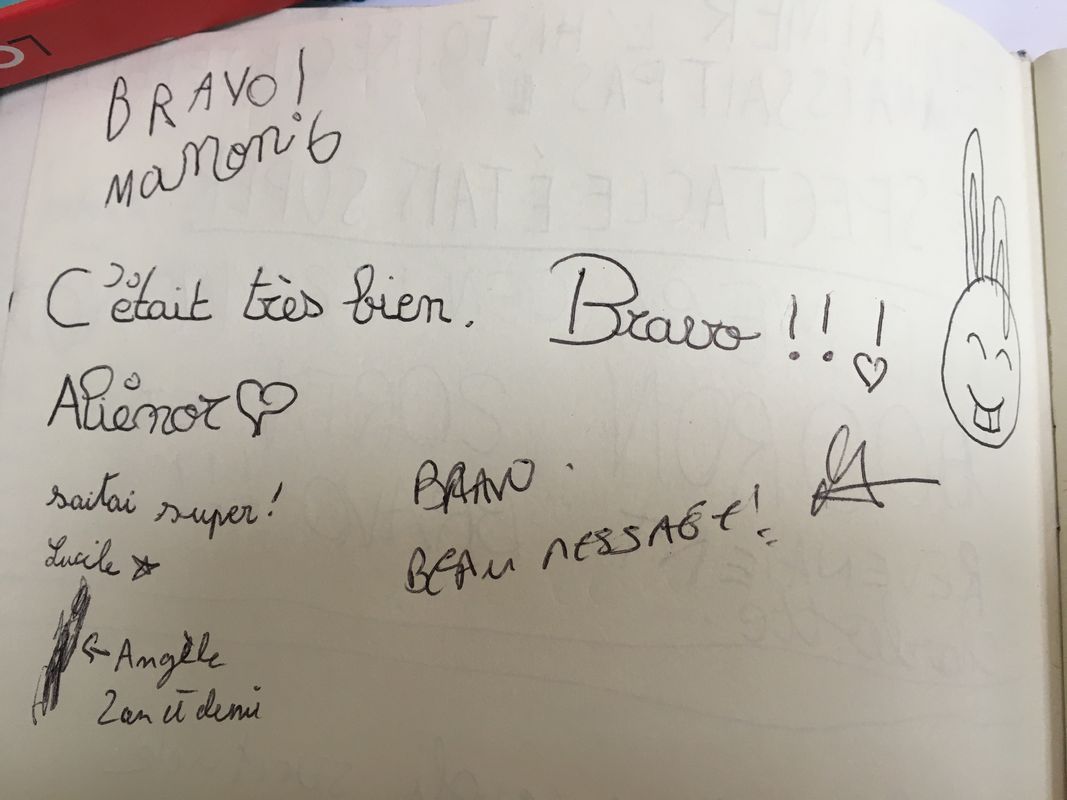 BRAVO!
Manon 6
C'était très bien.
Bravo !!!
Aliénor
saitai super!
Lucile
BRAVO.
BEAU MESSAGE!
← Angèle
2 an et demi